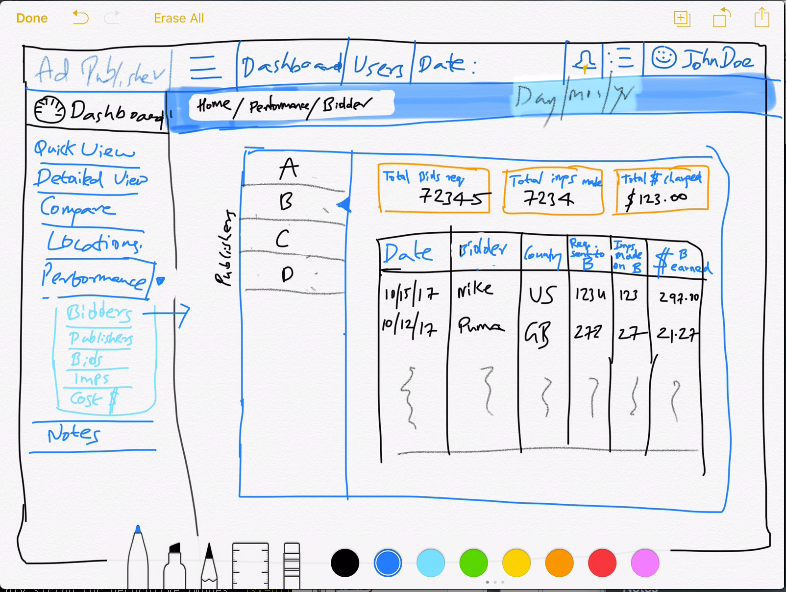 Done
Erase All
Ad Publisher
Dashboard
Users
Date:
John Doe
Dashboard
Home / Performance / Bidder
Day/mon/yr
Quick View
Detailed View
Compare
Locations
Performance
Bidders
Publishers
Bids
Imps
Cost $
Notes
Publishers
A
B
C
D
Total Bids req
72345
Total imps made
7234
Total $ charged
$123.00
Date Bidder Country Req. sent to B Imps made on B $ B earned
10/15/17 Nike US 1234 123 297.10
10/12/17 Puma GB 272 27 21.27
Notes